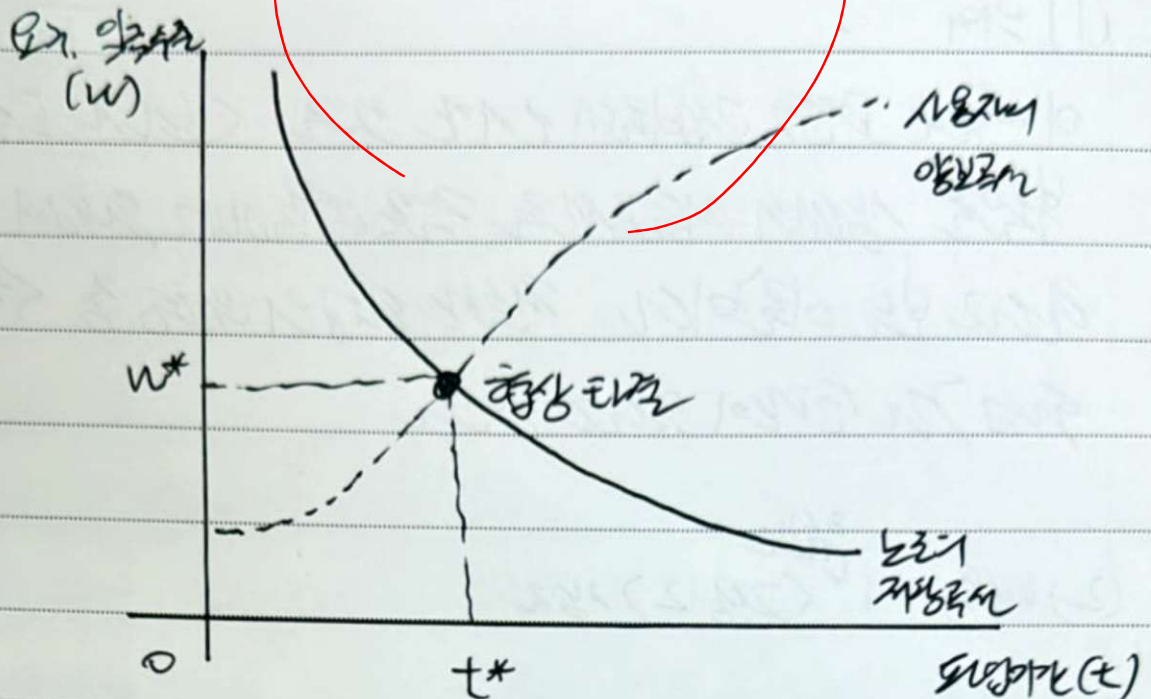 요구, 임금수준
(w)
사용자의
양보곡선
w*
협상 타결
노조의
저항곡선
0
t*
파업기간(t)